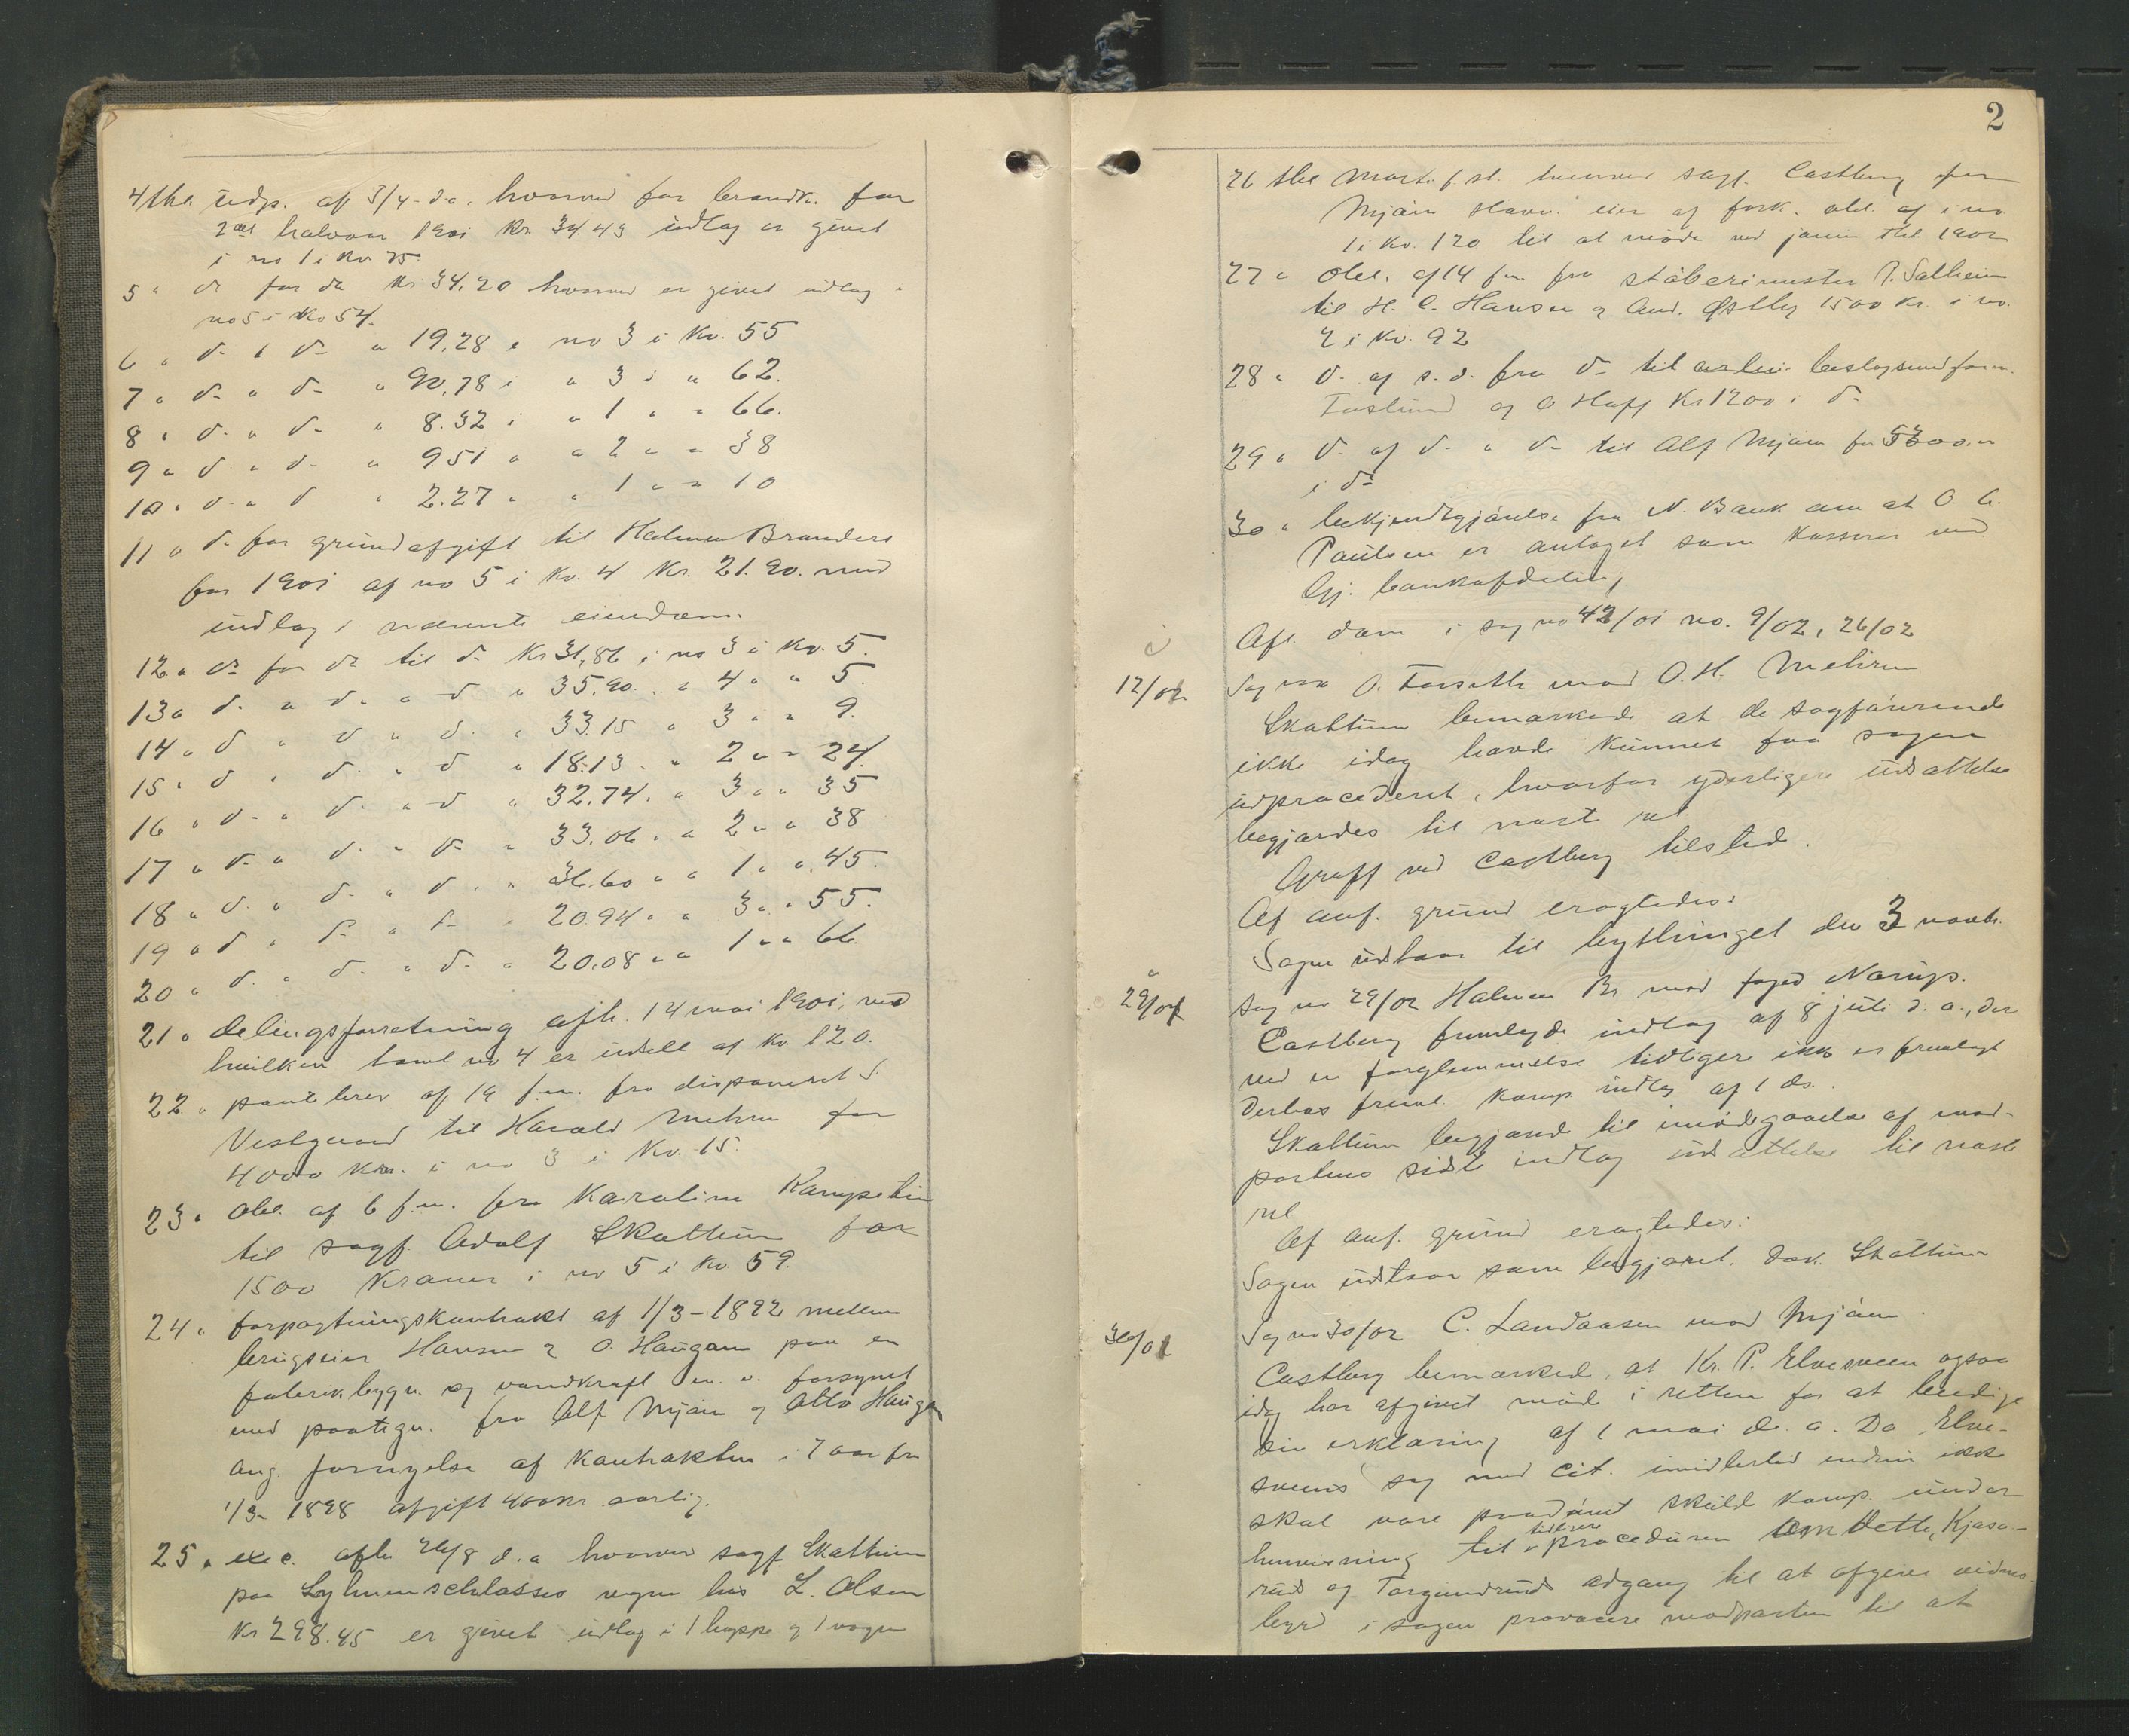 4 thl. udp. af 3/4 d.a. hvorved for brandk. for
2det halvaar 1901 Kr. 34.43 udlæg er givet
i no 1 i Kv 75.
5 " do for do Kr 34.20 hvorved er givet udlæg i
no 5 i Kv 54.
6 " d- " d- " 19.28 i no 3 i Kv. 55
7 " d- " d- " 90.78 i " 3 i " 62.
8 " d- " d- " 8.32 i " 1 " " 66.
9 " d- " d- " 9.51 " " 2 " " 38
10 " d- " d- " 2.27 " " 1 " " 10
11 " d- for grundafgift til Holmen Branders
for 1901 af no 5 i Kv. 4 Kr. 21.90. med
udlæg i nævnte eiendom.
12 " do for do til do Kr 31,86 i no 3 i Kv. 5.
13 " d- " d- " d- " 35.90. " 4 " " 5.
14 " d- " d- " d- " 33.15 " 3 " " 9.
15 " d- " d- " d- " 18.13 " " 2 " " 24.
16 " d- " d- " d- " 32.74. " 3 " " 35
17 " d- " d- " d- " 33.06 " " 2 " " 38
18 " d- " d- " d- " 36.60 " " 1 " " 45.
19 " d- " d- " d- " 20.94 " " 3 " " 55.
20 " d- " d- " d- " 20.08 " " 1 " " 66.
21 " delingsforretning afh. 14 mai 1901, ved
hvilken tomt no 4 er udskilt af Kv 120.
22 " pantebrev af 19 f.m. fra disponent S.
Vestgaard til Harald Mehren for
4000 Kr. i no 3 i Kv. 15.
23 " obl. af 6 f.m. fra Karoline Kampestin
til sagf. Adolf Skattum for
1500 Kroner i no 5 i Kv. 59.
24 " forpagtningskontrakt af 1/3-1892 mellem
brugseier Hansen & O. Haugan paa en
fabrikbygn. og vandkraft m.v. forsynet
med paategn. fra Alf Mjøen og Otto Haugan
ang. fornyelse af kontrakten i 7 aar fra
1/3- 1898 afgift 400 kr aarlig.
25 " exec. afh. 26/8 d.a hvorved sagf. Skattum
paa Sylmenschlosses vegne hos L. Olsen
Kr 298.45 er givet udlæg i 1 hoppe & 1 vogn
2
26 thl. sagf. Castberg for
Mjøen Havn. eier af fork. obl. af i no
1 i Kv. 120 til at møde ved janu thl 1902
27 " obl. af 14 f.m. fra støberimester P. Solheim
til H. C. Hansen & And. Østby 1500 Kr. i no.
2 i Kv. 92
28 " d- af s.d. fra d- til beslagsmedform.
Faslund og O Hoff Kr 1200 i d-
29 " d- af d- " d- til Alf Mjøen for 5300.-
i d-
30 " bekjendtgjørelse fra N. Bank om at O. C.
Paulsen er antaget som Kasserer ved
Gj. bankafdeling.
Afs. dom i sag no 43/01 no. 9/02, 26/02
12/02 Sag no O. Forseth mod O. H. Mehren
Skattum bemærkede at de sagførerende
ikke idag havde kunnet faa sagen
udprocederet, hvorfor yderligere udsættelse
begjærdes til næst ret.
Graff ved Castberg tilsted.
Af anf. grund eragtedes:
Sagen udstaar til bythinget den 3 novbr.
29/02 Sag no 29/02 Holmen Br. mod foged Narup.
Castberg fremlagde indlæg af 8 juli d.a., der
ved en forglemmelse tidligere ikke er fremlagt
Derhos freml. kamp indlæg af 1 ds.
Skattum begjærede til imødegaaelse af mod-
partens sidste indlæg udsættelse til næste
ret
Af anf. grund eragtedes:
Sagen udstaar som begjæret. Dok. Skattum
30/02 Sag no 30/02 C. Landaasen mod Mjøen.
Castberg bemærked, at Kr. P. Elvesveen ogsaa
idag har afgivet møde i retten for at beedige
sin erklæring af 1 mai d. a. Da Elve-
sveens sag mod Cit. imidlertid endnu ikke
skal være paadømt skulde komp. under
henvisning til tidligere proceduren om dette, Kjøsa-
rud og Torgundruds adgang til at afgive vidnes-
byrd i sagen provocere modparten til at